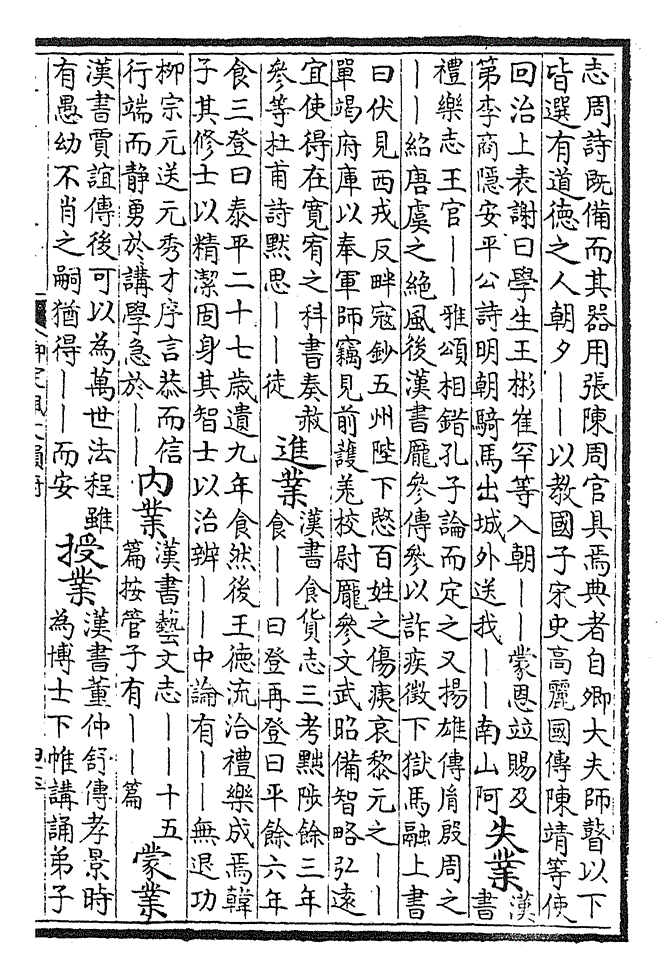 志周詩既備而其器用張陳周官具焉典者自卿大夫師瞽以下
皆選有道德之人朝夕——以教國子宋史高麗國傳陳靖等使
回治上表謝曰學生王彬崔罕等入朝——蒙恩竝賜及
第李商隱安平公詩明朝騎馬出城外送我——南山阿
失業
漢
書
禮樂志王官——雅頌相錯孔子論而定之又揚雄傳胤殷周之
——紹唐虞之絶風後漢書龐參傳參以詐疾徵下獄馬融上書
曰伏見西戎反畔寇鈔五州陛下愍百姓之傷痍哀黎元之——
單竭府庫以奉軍師竊見前護羌校尉龐參文武昭備智略弘遠
宜使得在寬宥之科書奏赦
參等杜甫詩黙思——徒
進業
漢書食貨志三考黜陟餘三年
食——曰登再登曰平餘六年
食三登曰泰平二十七歲遺九年食然後王德流洽禮樂成焉韓
子其修士以精潔固身其智士以治辨——中論有——無退功
柳宗元送元秀才序言恭而信
行端而静勇於講學急於——
内業
漢書藝文志——十五
篇按管子有——篇
蒙業
漢書賈誼傳後可以為萬世法程雖
有愚幼不肖之嗣猶得——而安
授業
漢書董仲舒傳孝景時
為博士下帷講誦弟子